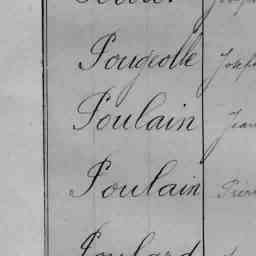 Pougeolle Joseph
Poulain Jean
Poulain Pierre
Poulard